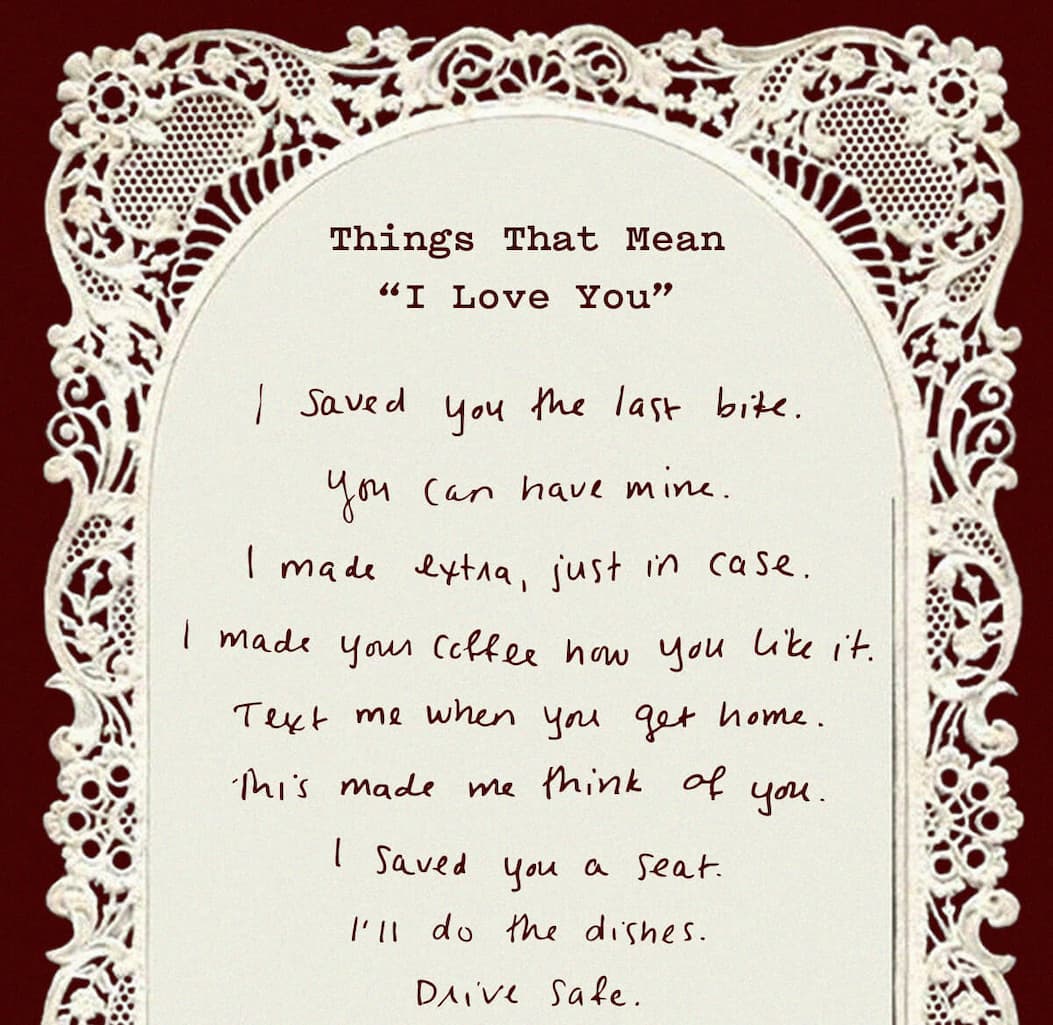 Things That Mean
“I Love You”
I saved you the last bite.
You can have mine.
I made extra, just in case.
I made your coffee how you like it.
Text me when you get home.
This made me think of you.
I saved you a seat.
I'll do the dishes.
Drive safe.